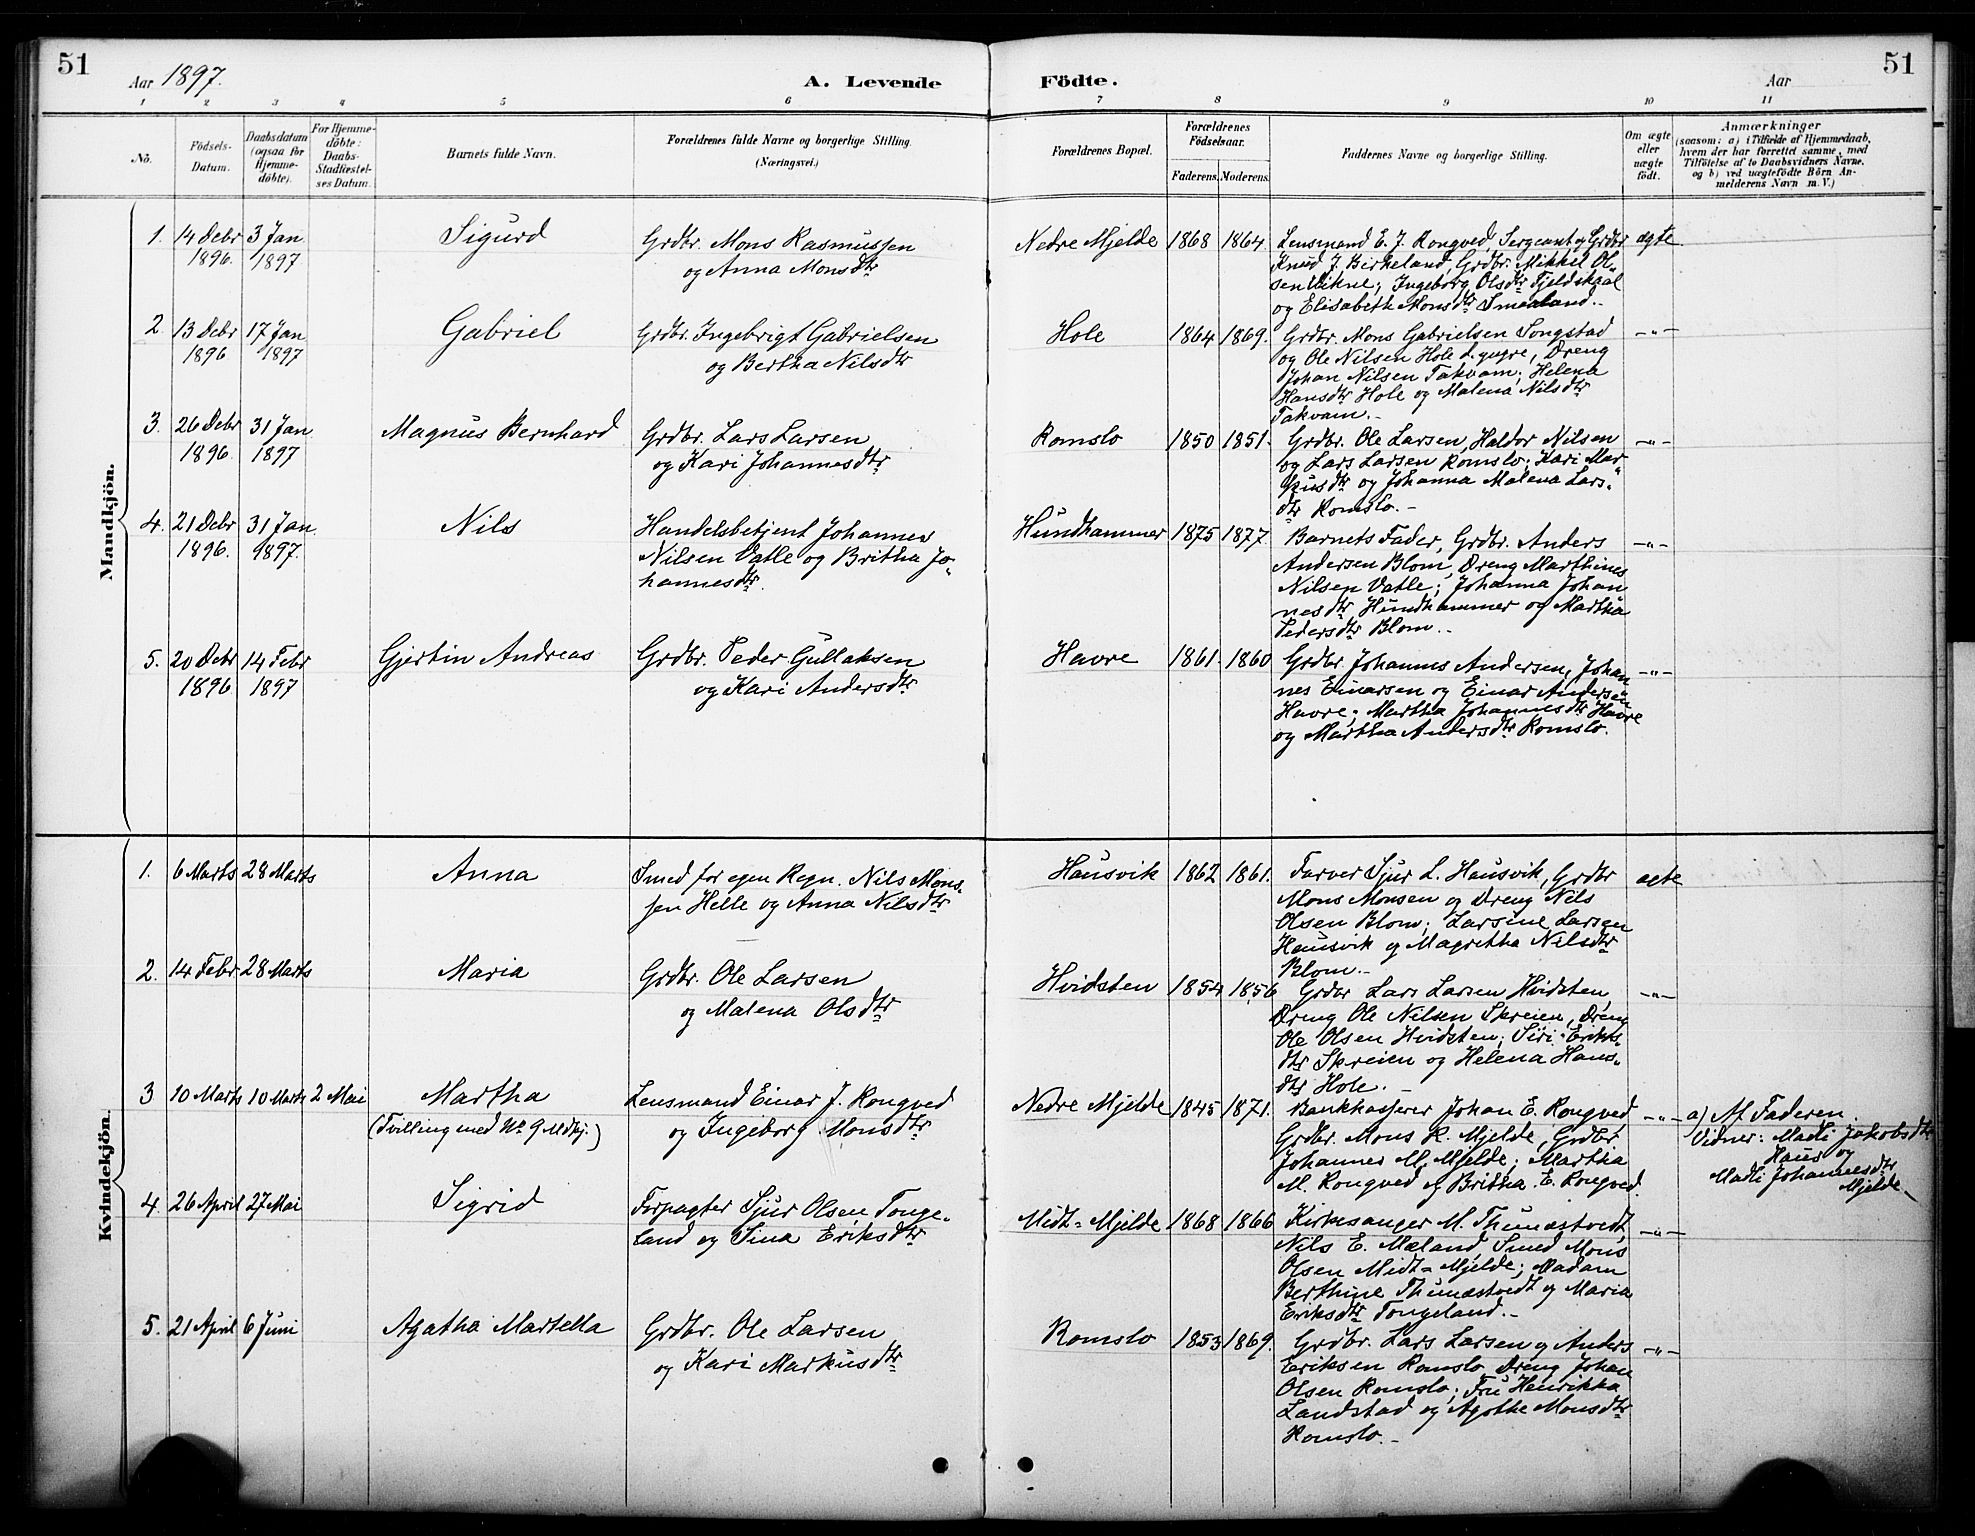 51
Aar 1897.
A. Levende Födte.
Aar
51
1 2 3 4 5 6 7 8 9 10 11
No.
Födsels-
Datum.
Daabsdatum
(ogsaa for
Hjemme-
döbte).
For Hjemme-
döbte:
Daabs-
Stadfæstel-
ses Datum.
Barnets fulde Navn.
Forældrenes fulde Navne og borgerlige Stilling.
(Næringsvei.)
Forældrenes Bopæl.
Forældrenes
Födselsaar.
Faderens. Moderens.
Faddernes Navne og borgerlige Stilling.
Om ægte
eller
uægte
födt.
Anmærkninger
(saasom: a) i Tilfælde af Hjemmedaab,
hvem der har forrettet samme, med
Tilföielse af to Daabsvidners Navne,
og b) ved uægtefödte Börn An-
melderens Navn m. V.)
Mandkjön.
1. 14 Debr 1896. 3 Jan 1897
Sigurd
Grdbr. Mons Rasmussen
og Anna Monsdtr
Nedre Mjelde 1868 1864.
Lensmand E. J. Rongved, Sergeant og Grdbr
Knud J. Birkeland, Grdbr. Mikkel Ol-
sen Vikne; Ingeborg Olsdtr Fjeldskaal
og Elisabeth Monsdtr Smaaland..
ægte
2. 13 Debr 1896 17 Jan 1897
Gabriel
Grdbr. Ingebrigt Gabrielsen
og Bertha Nilsdtr
Hole 1864 1869.
Grdbr. Mons Gabrielsen Songstad
og Ole Nilsen Hole d. yngre, Dreng
Johan Nilsen Takvam; Helena
Hansdtr Hole og Malena Nilsdtr
Takvam.-
-"-
3. 26 Debr 1896. 31 Jan 1897
Magnus Bernhard
Grdbr. Lars Larsen
og Kari Johannesdtr
Romslo 1850 1851.
Grdbr. Ole Larsen, Haldor Nilsen
og Lars Larsen Romslo; Kari Mar-
kusdtr og Johanna Malena Lars-
dtr Romslo.-
-"-
4. 21 Debr 1896. 31 Jan 1897.
Nils
Handelsbetjent Johannes
Nilsen Vatle og Britha Jo-
hannesdtr.
Hundhammer 1875 1877
Barnets Fader, Grdbr. Anders
Andersen Blom, Dreng Marthines
Nilsen Vatle; Johanna Johan
nesdtr Hundhammer og Martha
Pedersdtr Blom..
-"-
5. 20 Debr 1896 14 Febr 1897
Gjertin Andreas
Grdbr. Peder Gullaksen
og Kari Andersdtr
Havre 1861. 1860
Grdbr. Johannes Andersen, Johan
nes Einarsen og Einar Andersen
Havre; Martha Johannesdtr Havre
og Martha Andersdtr Romslo.
-"-
Kvindekjön.
1. 6 Marts 28 Marts
Anna
Smed for egen Regn. Nils Mons-
sen Helle og Anna Nilsdtr
Hausvik 1862 1861.
Farver Sjur L. Hausvik, Grdbr
Mons Monsen og Dreng Nils
Olsen Blom; Larsine Larsen
Hausvik og Magretha Nilsdtr
Blom.-
ægte
2. 14 Febr 28 Marts
Maria
Grdbr. Ole Larsen
og Malena Olsdtr
Hvidsten 1854 1856
Grdbr Lars Larsen Hvidsten,
Dreng Ole Nilsen Skreien, Dreng
Ole Olsen Hvidsten; Siri Eriks-
dtr Skreien og Helena Hans-
dtr Hole.-
-"-
3 10 Marts 10 Marts 2 Mai
Martha
(Tvilling med No 9 Mdkj.)
Lensmand Einar J. Rongved
og Ingeborg Monsdtr
Nedre Mjelde 1845 1871.
Bankkasserer Johan E. Rongved,
Grdbr. Mons R. Mjelde, Grdbr.
Johannes M. Mjelde; Martha
M. Rongved og Britha E. Rongved.
-"-
a) Af Faderen.
Vidner: Madli Jakobsdtr
Haus og
Madli Johannesdtr
Mjelde-
4. 26 April 27 Mai
Sigrid
Forpagter Sjur Olsen Tonge-
land og Sina Eriksdtr
Midt-Mjelde 1868 1866
Kirkesanger M. Thunæstvedt,
Nils E. Mæland, Smed Mons
Olsen Midt-Mjelde; Madam
Berthine Thunæstvedt og Maria
Eriksdtr Tongeland.-
-"-
5. 21 April 6 Juni
Agatha Martella
Grdbr. Ole Larsen
og Kari Markusdtr
Romslo 1853 1869.
Grdbr. Lars Larsen og Anders
Eriksen Romslo, Dreng Johan
Olsen Romslo; Fru Henrikka
Landstad og Agathe Monsdtr
Romslo.-
-"-